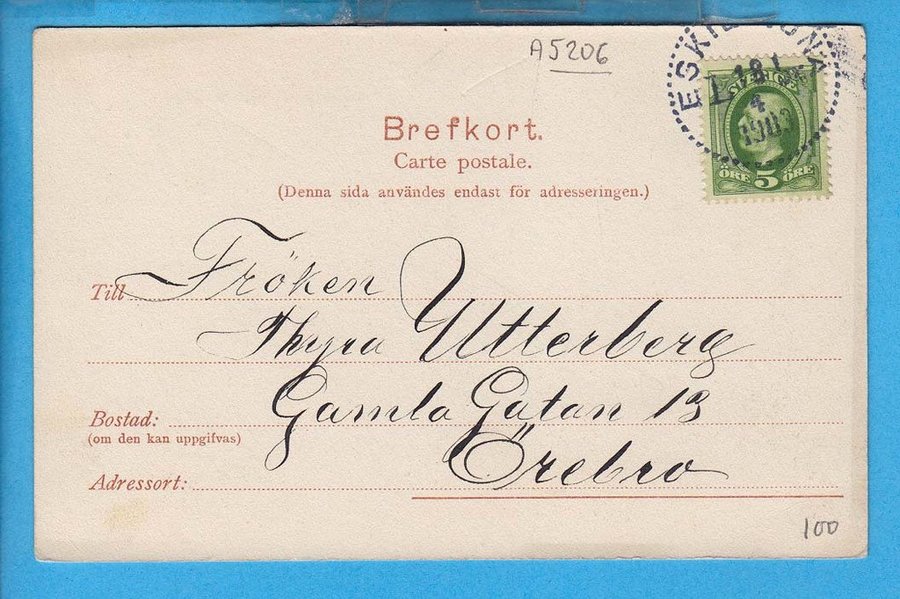 A5206
ESKILSTUNA
SVERIGE
4
1903
ÖRE 5 ÖRE
Brefkort.
Carte postale.
(Denna sida användes endast för adresseringen.)
Till Fröken
Thyra Utterberg
Bostad: Gamla Gatan 13
(om den kan uppgifvas)
Adressort: Örebro
100